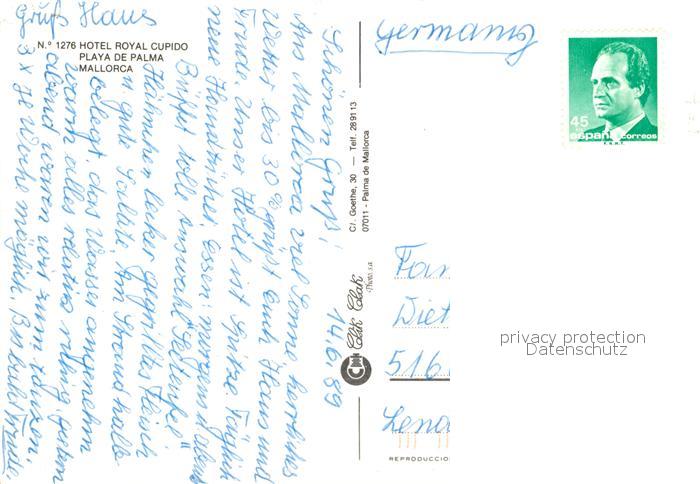 Gruß Haus
N.º 1276 HOTEL ROYAL CUPIDO
PLAYA DE PALMA
MALLORCA
Schönen Gruß! 14.6.89
Aus Mallorca viel Sonne herrliches
Wetter bis 30 % grüßt euch Haus und
Trude. Unser Hotel ist Spitze. Täglich
neue Handtücher, Essen: morgens + abens
Büffet tolle auswahl
Hähnchen lecker gegrilltes Fleisch
gute Salate. Am Strand halb
belegt das Wasser angenehm
warm alles relativ ruhig, gestern
abend waren wir zum tanzen,
3 x die Woche möglich. Bis bald Trude
C/. Goethe, 30 — Telf. 289113
07011 - Palma de Mallorca
Clik Clak
Photo, s.a.
Germany
45
españa correos
F.N.M.T.
Fam
Diet
516
Lena
REPRODUCCIO
privacy protection
Datenschutz